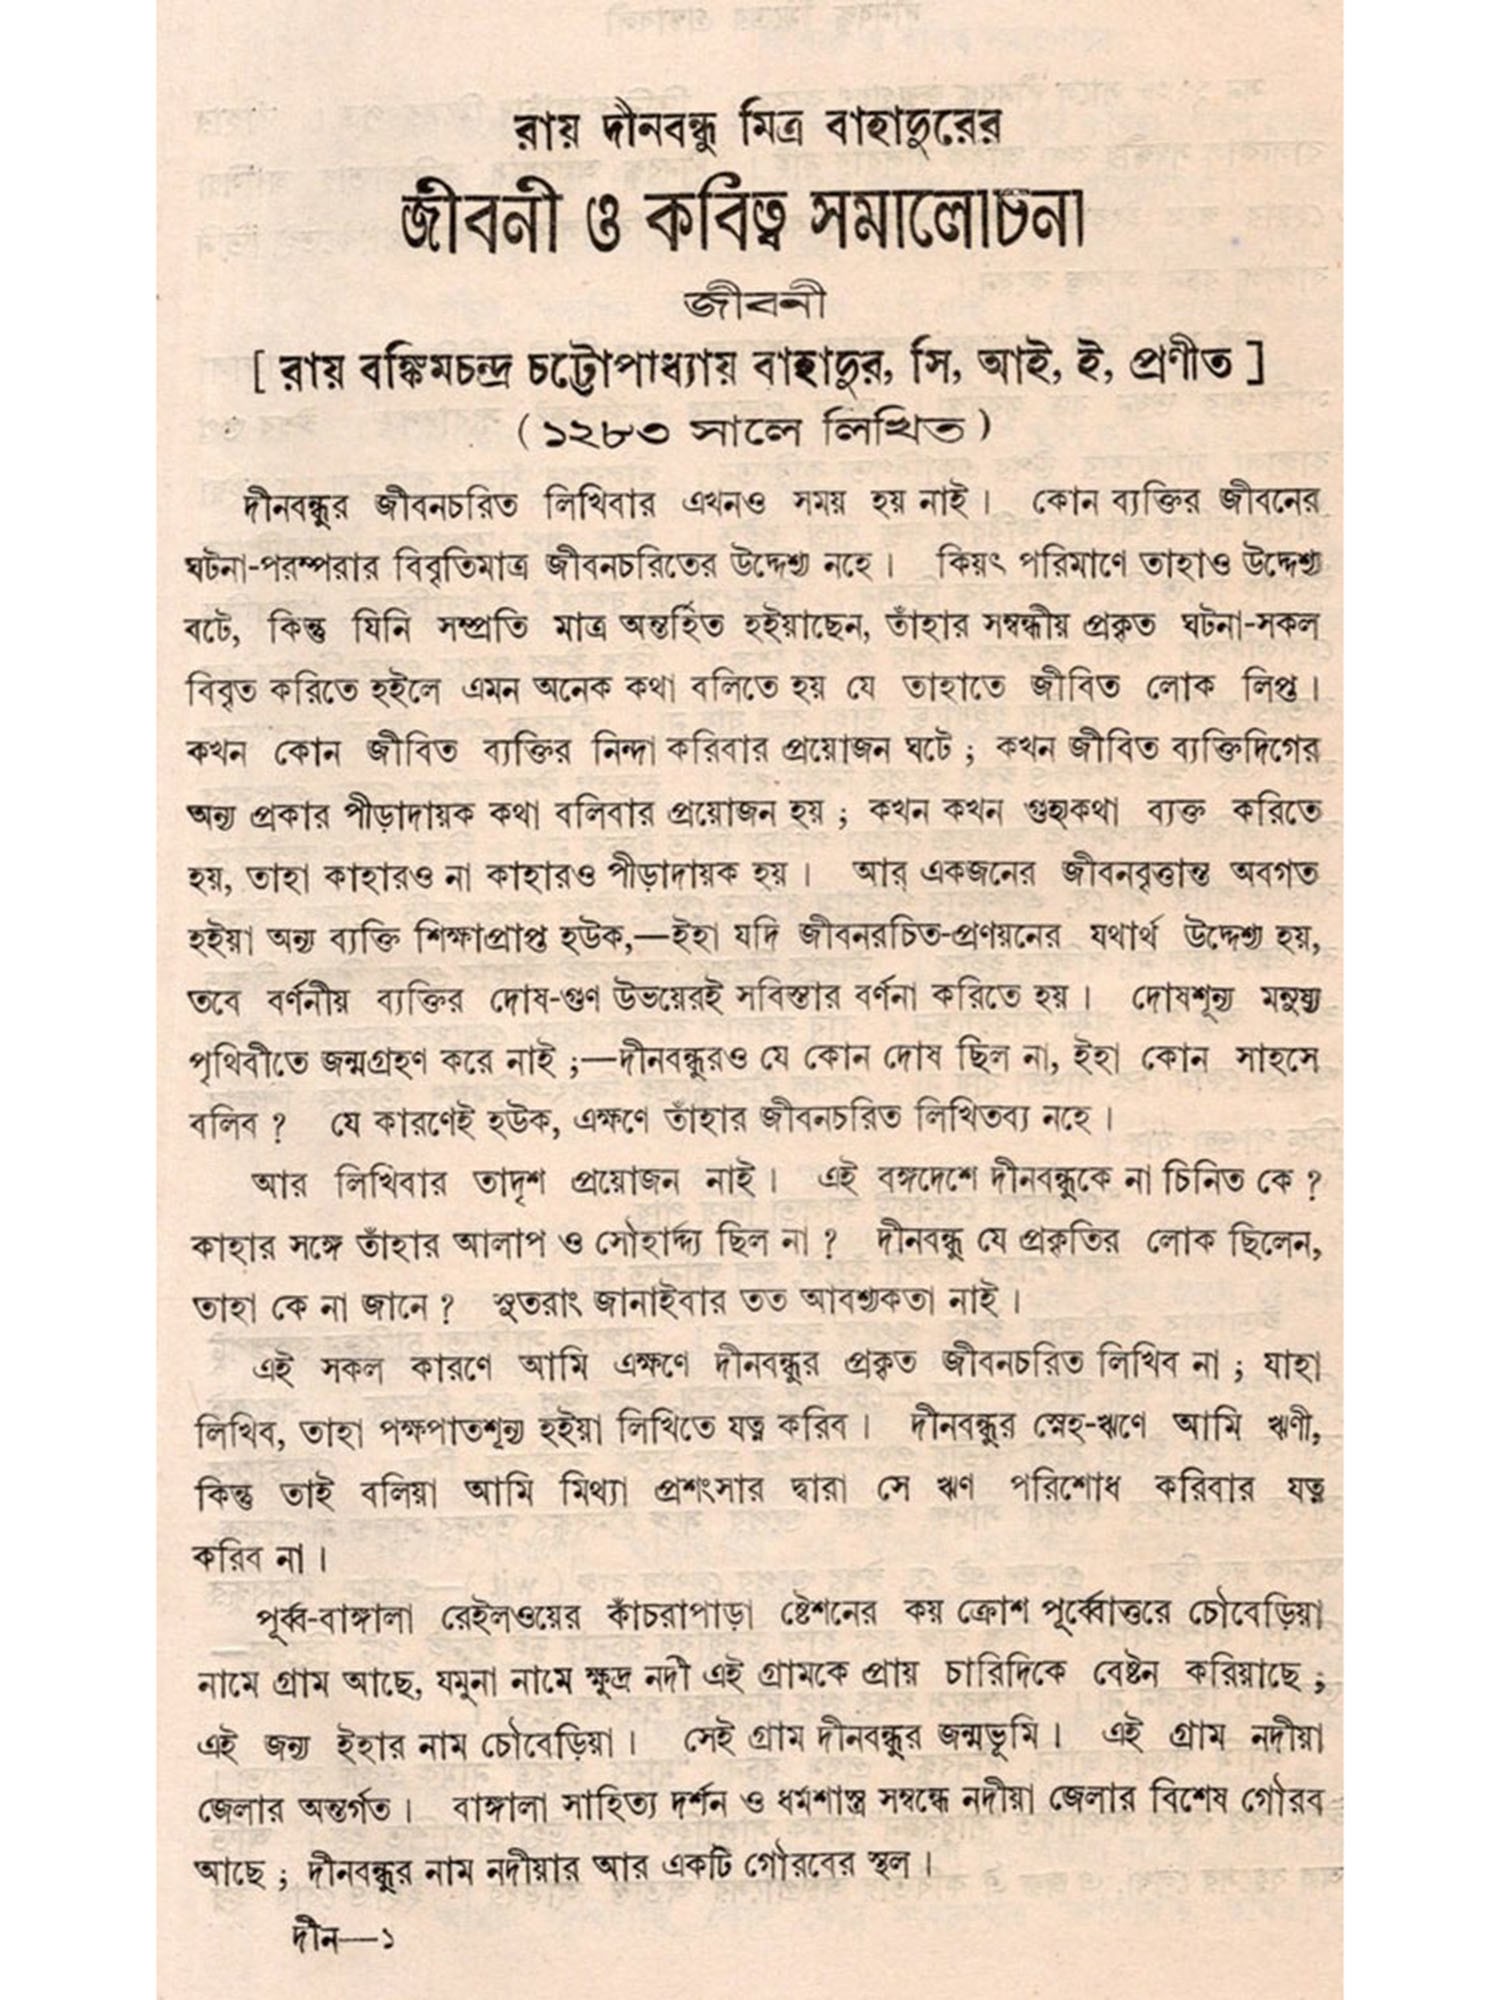 রায় দীনবন্ধু মিত্র বাহাদুরের
জীবনী ও কবিত্ব সমালোচনা
জীবনী
[ রায় বঙ্কিমচন্দ্র চট্টোপাধ্যায় বাহাদুর, সি, আই, ই, প্রণীত ]
( ১২৮৩ সালে লিখিত )
দীনবন্ধুর জীবনচরিত লিখিবার এখনও সময় হয় নাই। কোন ব্যক্তির জীবনের
ঘটনা-পরম্পরার বিবৃতিমাত্র জীবনচরিতের উদ্দেশ্য নহে। কিয়ৎ পরিমাণে তাহাও উদ্দেশ্য
বটে, কিন্তু যিনি সম্প্রতি মাত্র অন্তর্হিত হইয়াছেন, তাঁহার সম্বন্ধীয় প্রকৃত ঘটনা-সকল
বিবৃত করিতে হইলে এমন অনেক কথা বলিতে হয় যে তাহাতে জীবিত লোক লিপ্ত।
কখন কোন জীবিত ব্যক্তির নিন্দা করিবার প্রয়োজন ঘটে ; কখন জীবিত ব্যক্তিদিগের
অন্য প্রকার পীড়াদায়ক কথা বলিবার প্রয়োজন হয় ; কখন কখন গুহ্যকথা ব্যক্ত করিতে
হয়, তাহা কাহারও না কাহারও পীড়াদায়ক হয়। আর্ একজনের জীবনবৃত্তান্ত অবগত
হইয়া অন্য ব্যক্তি শিক্ষাপ্রাপ্ত হউক,—ইহা যদি জীবনরচিত-প্রণয়নের যথার্থ উদ্দেশ্য হয়,
তবে বর্ণনীয় ব্যক্তির দোষ-গুণ উভয়েরই সবিস্তার বর্ণনা করিতে হয়। দোষশূন্য মনুষ্য
পৃথিবীতে জন্মগ্রহণ করে নাই ;—দীনবন্ধুরও যে কোন দোষ ছিল না, ইহা কোন সাহসে
বলিব ? যে কারণেই হউক, এক্ষণে তাঁহার জীবনচরিত লিখিতব্য নহে।
আর লিখিবার তাদৃশ প্রয়োজন নাই। এই বঙ্গদেশে দীনবন্ধুকে না চিনিত কে ?
কাহার সঙ্গে তাঁহার আলাপ ও সৌহার্দ্দ্য ছিল না ? দীনবন্ধু যে প্রকৃতির লোক ছিলেন,
তাহা কে না জানে ? সুতরাং জানাইবার তত আবশ্যকতা নাই।
এই সকল কারণে আমি এক্ষণে দীনবন্ধুর প্রকৃত জীবনচরিত লিখিব না ; যাহা
লিখিব, তাহা পক্ষপাতশূন্য হইয়া লিখিতে যত্ন করিব। দীনবন্ধুর স্নেহ-ঋণে আমি ঋণী,
কিন্তু তাই বলিয়া আমি মিথ্যা প্রশংসার দ্বারা সে ঋণ পরিশোধ করিবার যত্ন
করিব না।
পূর্ব্ব-বাঙ্গালা রেইলওয়ের কাঁচরাপাড়া ষ্টেশনের কয় ক্রোশ পূর্ব্বোত্তরে চৌবেড়িয়া
নামে গ্রাম আছে, যমুনা নামে ক্ষুদ্র নদী এই গ্রামকে প্রায় চারিদিকে বেষ্টন করিয়াছে ;
এই জন্য ইহার নাম চৌবেড়িয়া। সেই গ্রাম দীনবন্ধুর জন্মভূমি। এই গ্রাম নদীয়া
জেলার অন্তর্গত। বাঙ্গালা সাহিত্য দর্শন ও ধর্মশাস্ত্র সম্বন্ধে নদীয়া জেলার বিশেষ গৌরব
আছে ; দীনবন্ধুর নাম নদীয়ার আর একটি গৌরবের স্থল।
দীন—১